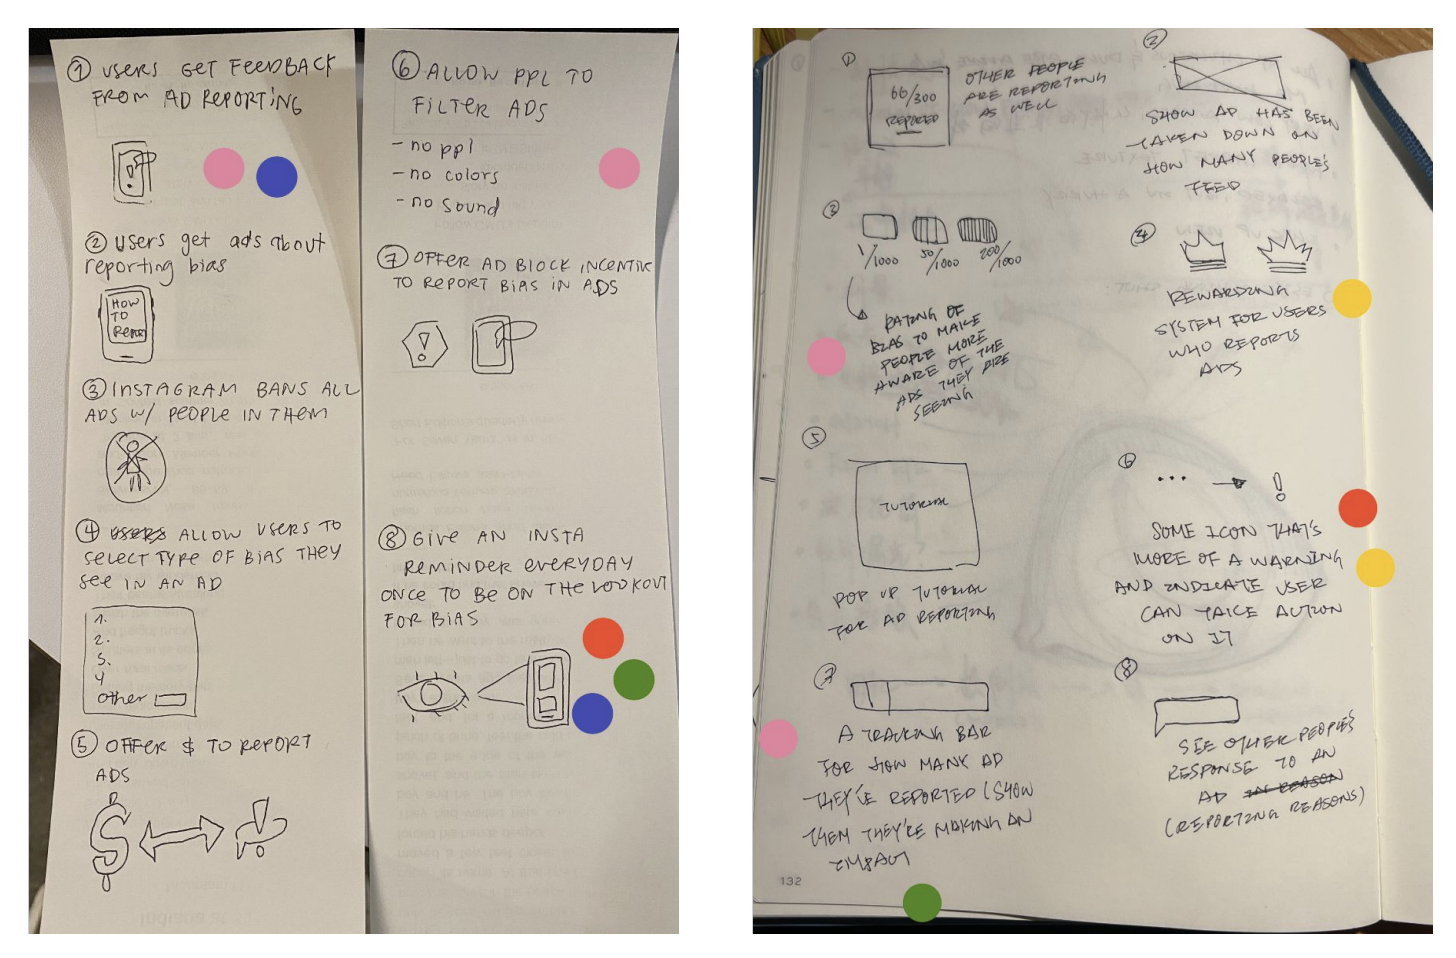 ① USERS GET FEEDBACK
FROM AD REPORTING
!
② USERS get ads about
reporting bias
HOW
TO
Report
③ INSTAGRAM BANS ALL
ADS W/ PEOPLE IN THEM
④ USERS ALLOW USERS TO
SELECT TYPE OF BIAS THEY
SEE IN AN AD
1.
2.
3.
4
other
⑤ OFFER $ TO REPORT
ADS
$ !
⑥ ALLOW PPL TO
FILTER ADS
- no ppl
- no colors
- no sound
⑦ OFFER AD BLOCK INCENTIVE
TO REPORT BIAS IN ADS
!
⑧ GIVE AN INSTA
REMINDER EVERYDAY
ONCE TO BE ON THE LOOKOUT
FOR BIAS
①
66/300
REPORTED
OTHER PEOPLE
ARE REPORTING
AS WELL
②
SHOW AD HAS BEEN
TAKEN DOWN ON
HOW MANY PEOPLE'S
FEED
③
1/1000
50/1000
200/1000
RATING OF
BIAS TO MAKE
PEOPLE MORE
AWARE OF THE
ADS THEY ARE
SEEING
④
REWARDING
SYSTEM FOR USERS
WHO REPORTS
ADS
⑤
TUTORIAL
POP UP TUTORIAL
FOR AD REPORTING
⑥
... → !
SOME ICON THAT'S
MORE OF A WARNING
AND INDICATE USER
CAN TAKE ACTION
ON IT
⑦
A TRACKING BAR
FOR HOW MANK AD
THEY'VE REPORTED (SHOW
THEM THEY'RE MAKING AN
IMPACT
⑧
SEE OTHER PEOPLE'S
RESPONSE TO AN
AD REASON
(REPORTING REASONS)
132